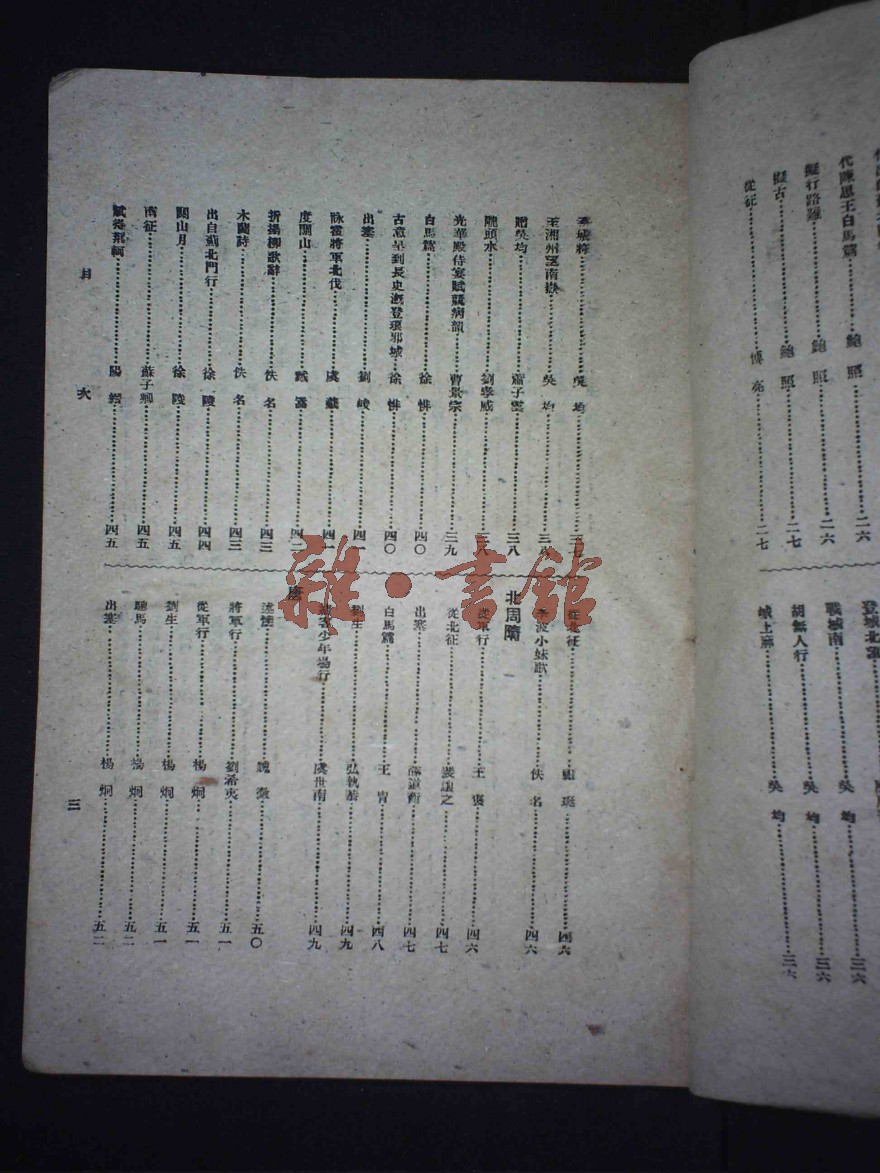 代陳思王白馬篇……鮑照……二六
擬行路難……鮑照……二六
擬古……鮑照……二七
從征……博亮……二七
登城北
戰城南……吳均……三六
胡無人行……吳均……三六
城上麻……吳均……三六
城將……吳均……三七
至湘州望南嶽……吳均……三八
贈吳均……蕭子雲……三八
隴頭水……劉孝威……三八
光華殿侍宴賦競病韻……曹景宗……三九
白馬篇……徐悱……四〇
古意呈到長史溉登琅邪城……徐悱……四〇
出塞……劉峻……四一
詠霍將軍北伐……虞羲……四一
度關山……戴暠……四二
折揚柳歌辭……佚名……四三
木蘭詩……佚名……四三
出自薊北門行……徐陵……四四
關山月……徐陵……四五
南征……蘇子卿……四五
賦荊軻……陽縉……四五
從北征……四六
李波小妹歌……佚名……四六
北周隋
從軍行……王褒……四六
從北征……裴讓之……四七
出塞……薛道衡……四七
白馬篇……王冑……四八
劉生……弘執恭……四九
結客少年場行……虞世南……四九
唐
述懷……魏徵……五〇
將軍行……劉希夷……五一
從軍行……楊炯……五一
劉生……楊炯……五一
驄馬……楊炯……五二
出塞……楊炯……五二
目次
三
雜·書館